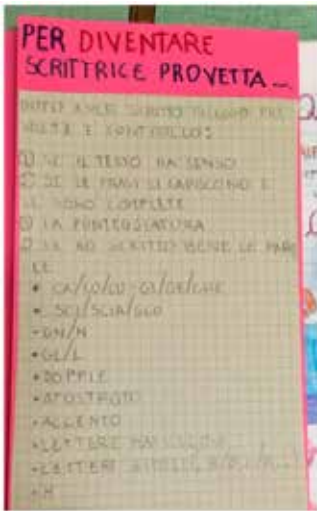 PER DIVENTARE
SCRITTRICE PROVETTA...
DOPO AVER SCRITTO RILEGGO
VOLTE E CONTROLLO:
① SE IL TESTO HA SENSO
② SE LE FRASI SI CAPISCONO E
SE SONO COMPLETE
③ LA PUNTEGGIATURA
SE HO SCRITTO BENE LE PARO
LE
• CA/CO/CU-
• SCI/SCIA/
• GN/N
• GL/L
• DOPPIE
• APOSTROFO
• ACCENTO
• LETTERE MAIUSCOLE
• LETTERE
• H